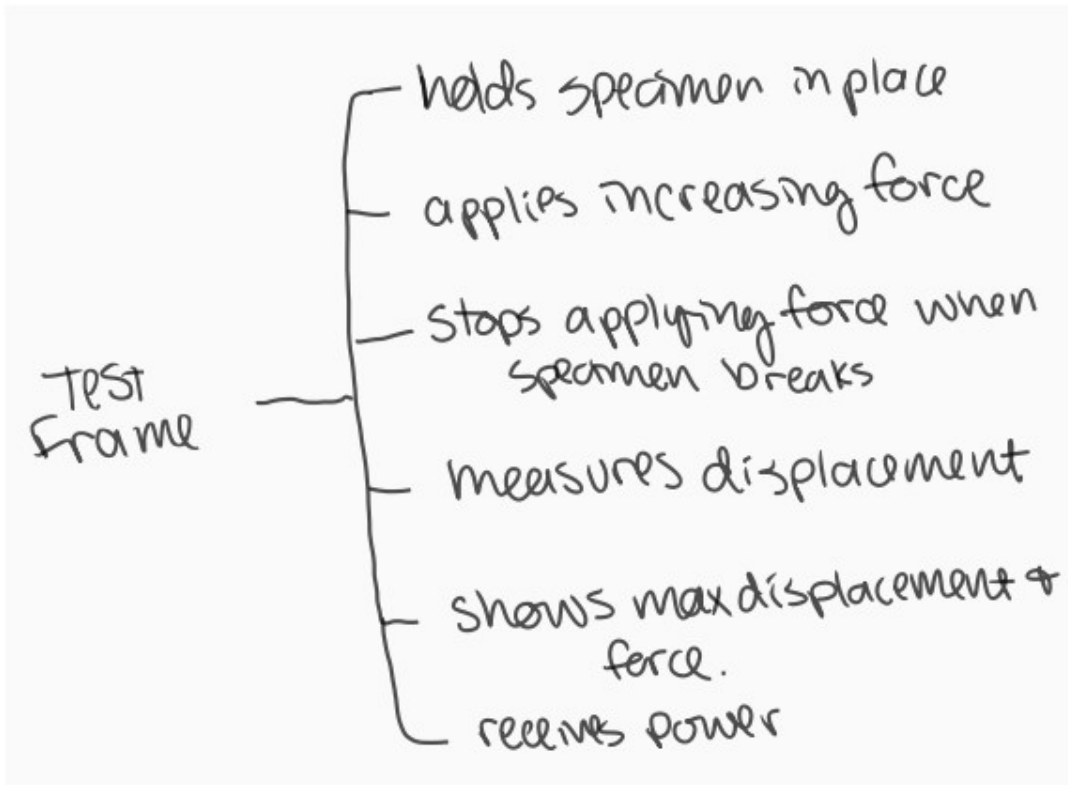 holds specimen in place
applies increasing force
stops applying force when
specimen breaks
Test
Frame
measures displacement
shows max displacement &
force.
receives power